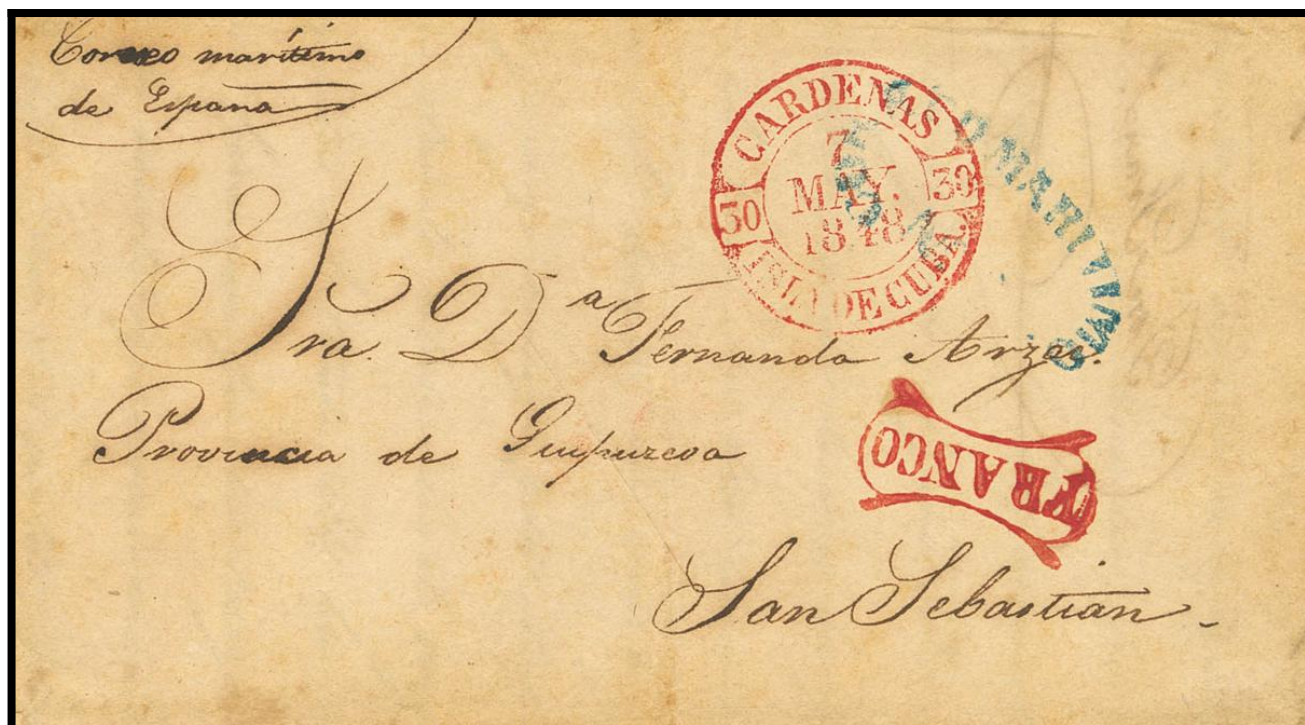 Correo marítimo
de España
CARDENAS
7
MAY.
1848
30 30
ISLA DE CUBA.
MARITIMO
Sra. Dª Fernanda Arzac.
Provincia de Guipuzcoa
FRANCO
San Sebastian.